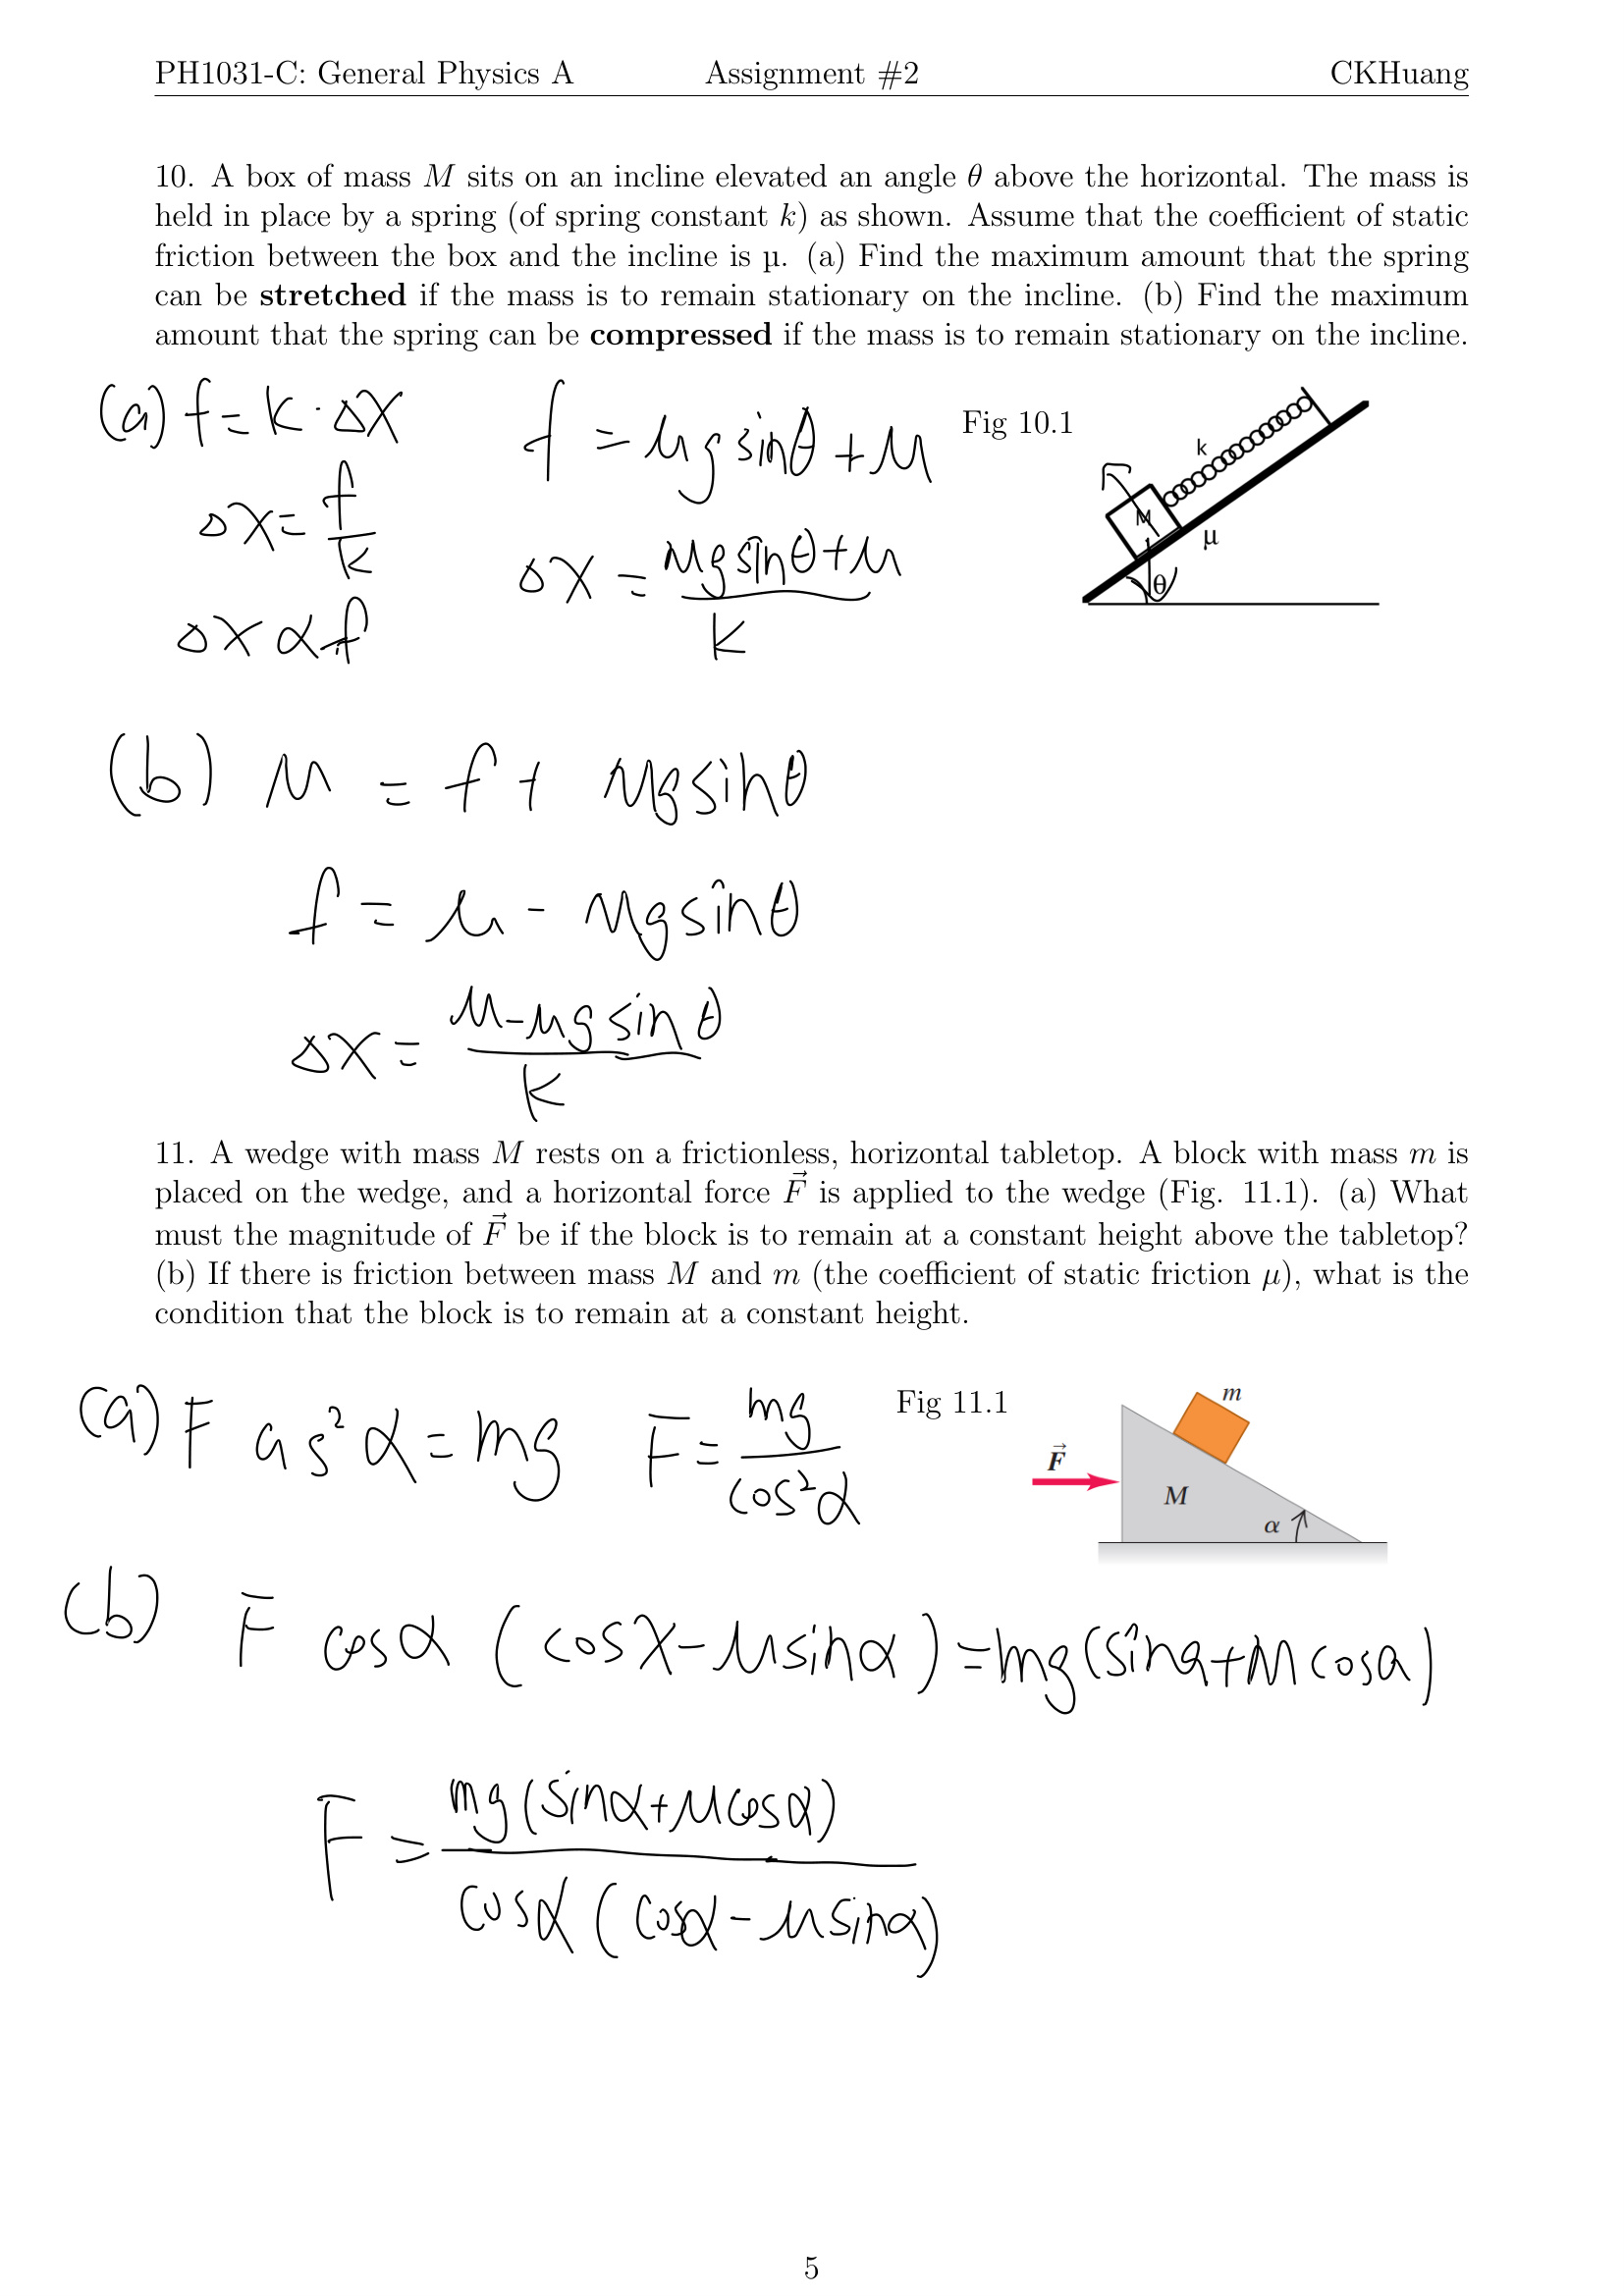 PH1031-C: General Physics A Assignment #2 CKHuang
10. A box of mass M sits on an incline elevated an angle θ above the horizontal. The mass is
held in place by a spring (of spring constant k) as shown. Assume that the coefficient of static
friction between the box and the incline is µ. (a) Find the maximum amount that the spring
can be stretched if the mass is to remain stationary on the incline. (b) Find the maximum
amount that the spring can be compressed if the mass is to remain stationary on the incline.
(a) f = k · Δx
Δx = f/k
Δx α f
f = Mg sinθ + μ
Δx = (Mg sinθ + μ)/k
Fig 10.1
k
M
µ
θ
(b) μ = f + Mg sinθ
f = μ - Mg sinθ
Δx = (μ - Mg sinθ)/k
11. A wedge with mass M rests on a frictionless, horizontal tabletop. A block with mass m is
placed on the wedge, and a horizontal force F⃗ is applied to the wedge (Fig. 11.1). (a) What
must the magnitude of F⃗ be if the block is to remain at a constant height above the tabletop?
(b) If there is friction between mass M and m (the coefficient of static friction μ), what is the
condition that the block is to remain at a constant height.
(a) F cos²α = mg F = mg/cos²α
Fig 11.1
m
F⃗
M
α
(b) F cosα (cosα - μ sinα) = mg (sinα + μ cosα)
F = mg (sinα + μ cosα)/cosα (cosα - μ sinα)
5